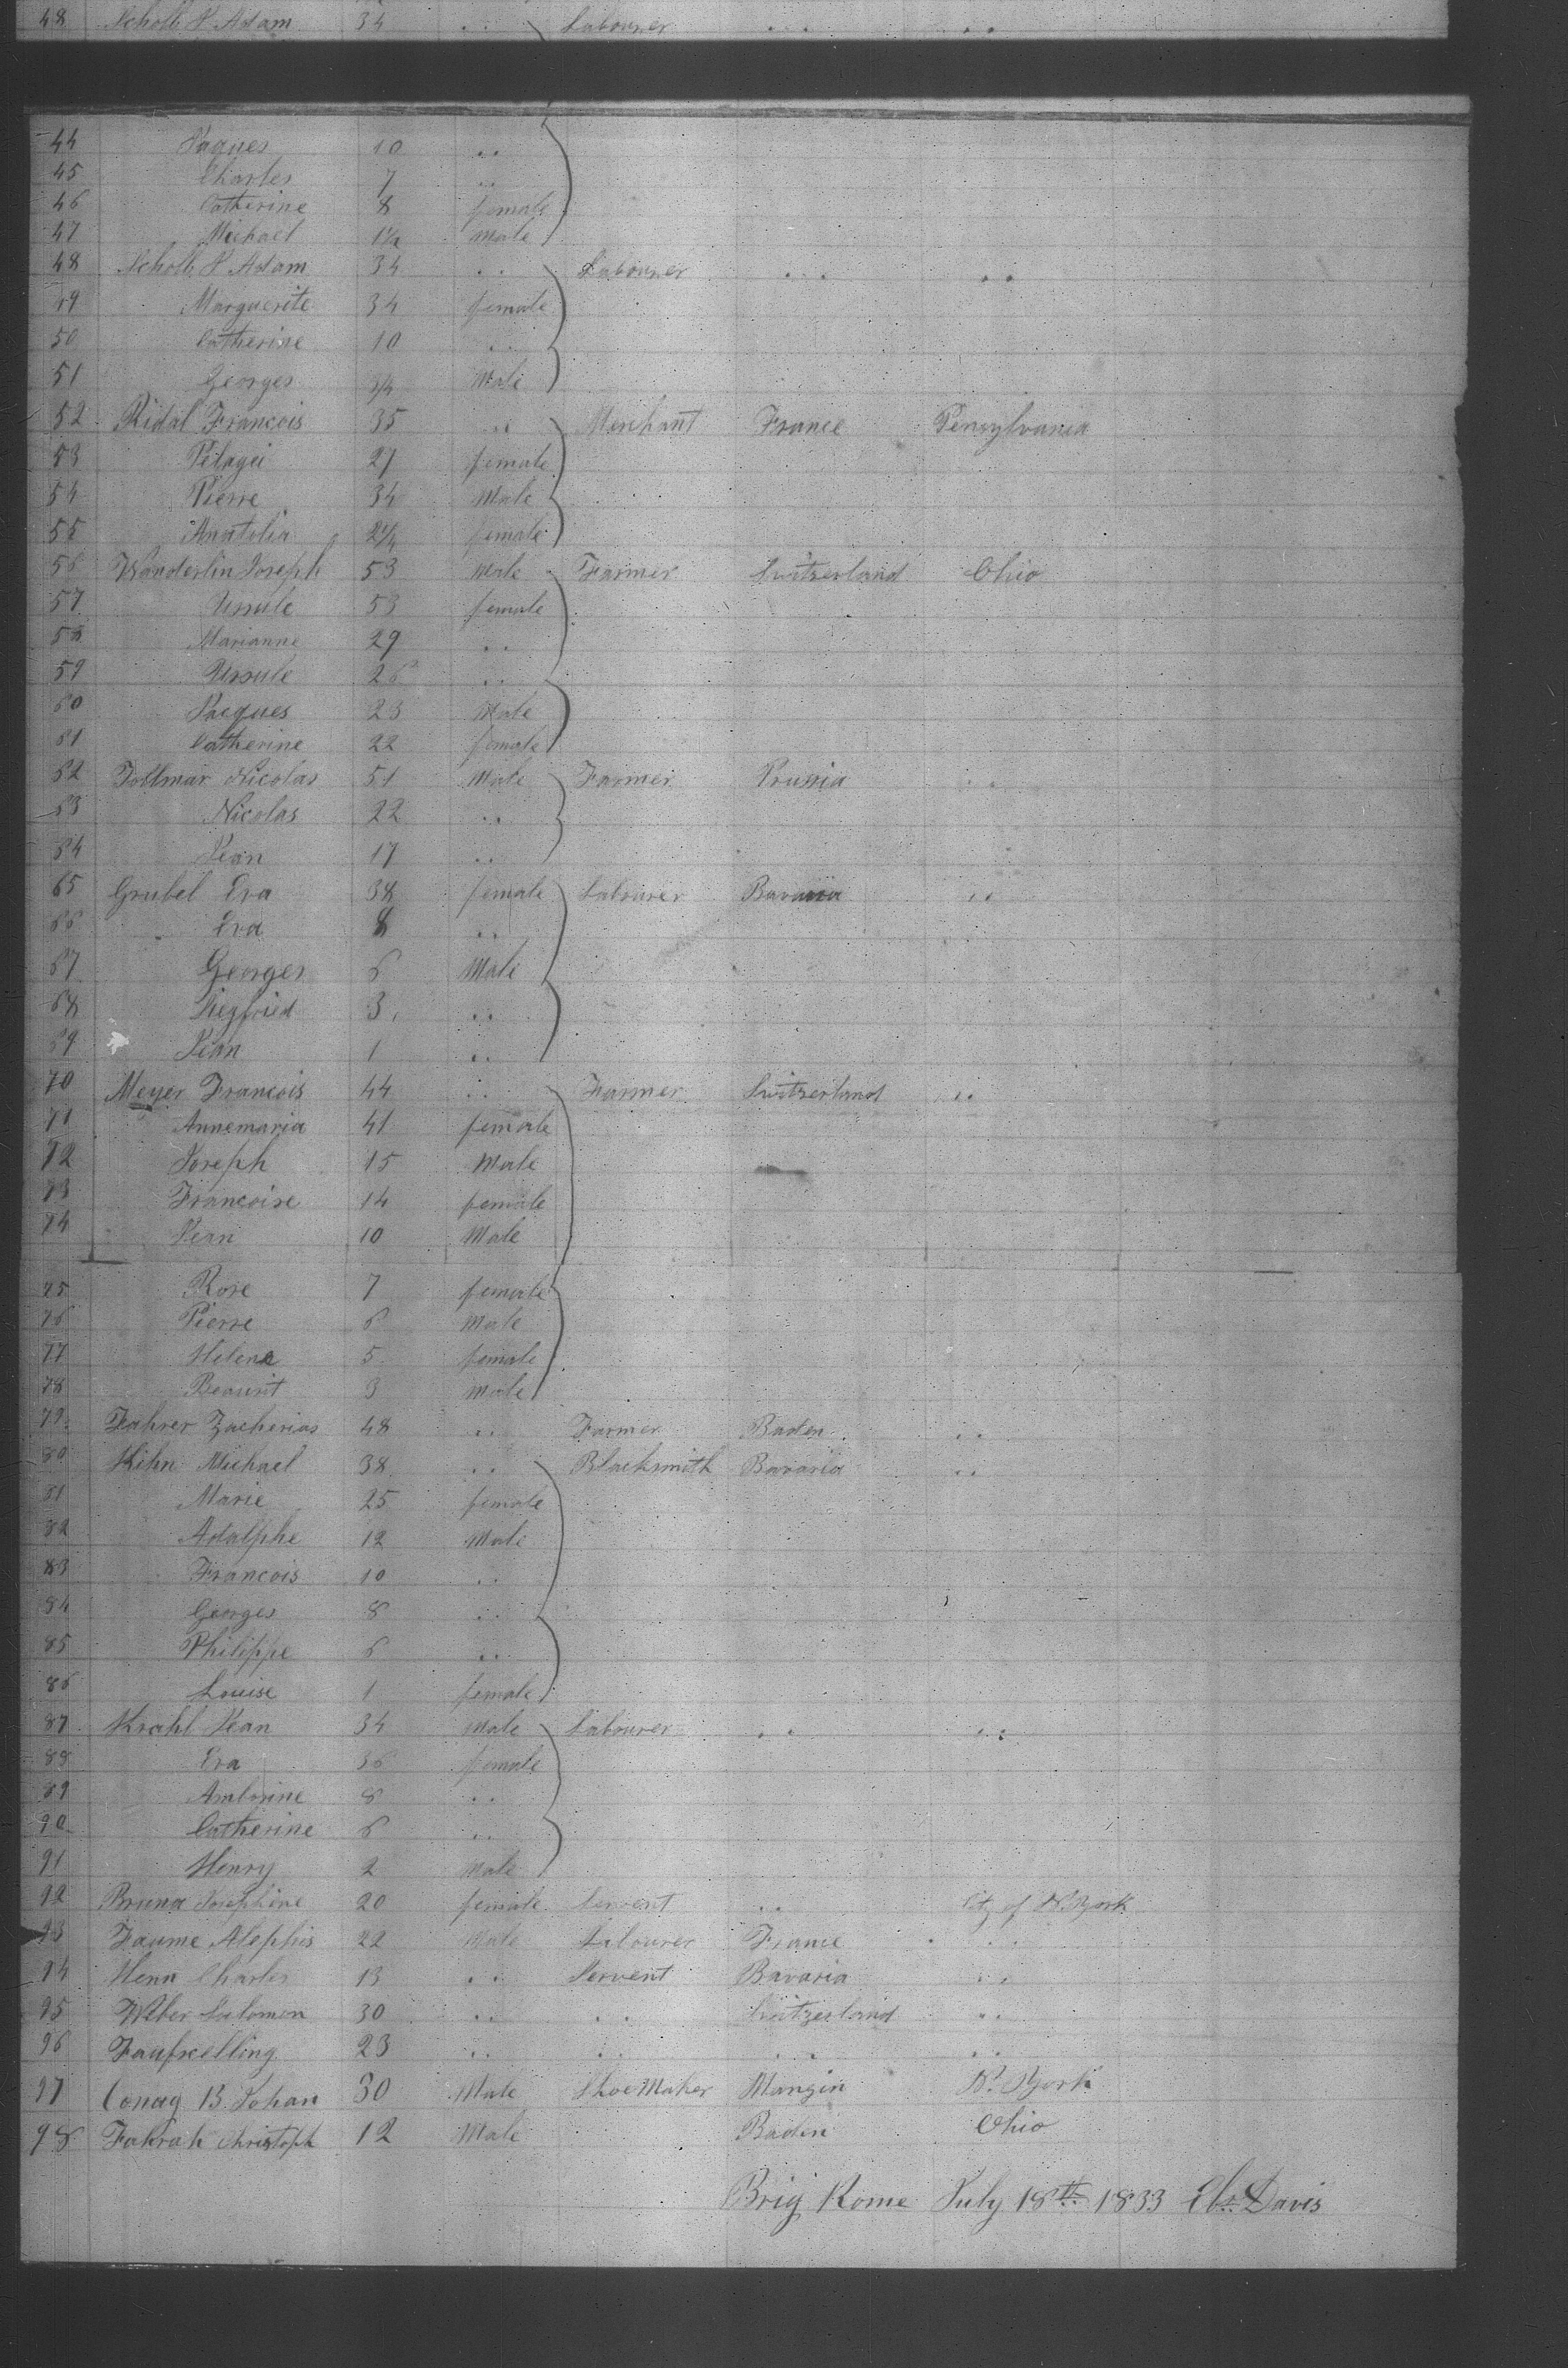 48 Scholl P Adam 34 .. Labourer ... ..
44 Jaques 10 ..
45 Charles 7 ..
46 Catherine 8 female
47 Michael 1½ Male
48 Scholl P Adam 34 .. Labourer ... ..
49 Marguerite 34 female
50 Catherine 10 ..
51 Georges 3/4 Male
52 Ridal Francois 35 .. Merchant France Pensylvania
53 Pelagei 27 female
54 Pierre 34 Male
55 Anatolia 2¼ female
56 Wanderlin Joseph 53 Male Farmer Switzerland Ohio
57 Ursule 53 female
58 Marianne 29 ..
59 Ursule 26 ..
60 Jacques 23 Male
61 Catherine 22 female
62 Follmar Nicolas 51 Male Farmer Prussia ..
63 Nicolas 22 ..
64 Jean 17 ..
65 Grubel Eva 38 female Labourer Bavaria ..
66 Eva 8 ..
67 Georges 6 Male
68 Siegfried 3 ..
69 Jean 1 ..
70 Meyer Francois 44 .. Farmer Switzerland ..
71 Annemaria 41 female
72 Joseph 15 Male
73 Francoise 14 female
74 Jean 10 Male
75 Rose 7 female
76 Pierre 6 Male
77 Helene 5 female
78 3 Male
79 Fahrer Zacherias 48 .. Farmer Baden ..
80 Kihn Michael 38 .. Blacksmith Bavaria ..
81 Marie 25 female
82 Adalphe 12 Male
83 Francois 10 ..
84 Georges 8 ..
85 Philippe 6 ..
86 Louise 1 female
87 Krahl Jean 34 Male Labourer .. ..
88 Eva 36 female
89 8 ..
90 Catherine 6 ..
91 Henry 2 Male
92 Bruna Josephine 20 female Servent .. City of N. York
93 Faume 22 Male Labourer France ..
94 Henn Charles 13 .. Servent Bavaria ..
95 Weber Salomon 30 .. .. Switzerland ..
96 23 .. .. .. ..
97 B. Johan 30 Male Shoe Maker N. York
98 Fahrah Christoph 12 Male Baden Ohio
Brig Rome July 18th 1833 Davis